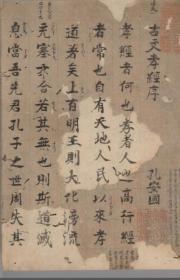 古文孝經序
孔安國
孝經者何也孝者人之高行經
者常也自有天地人民以來孝
道著矣上有明王則大化滂流
充塞六合若其無也則斯道滅
息當吾先君孔子之世周失其